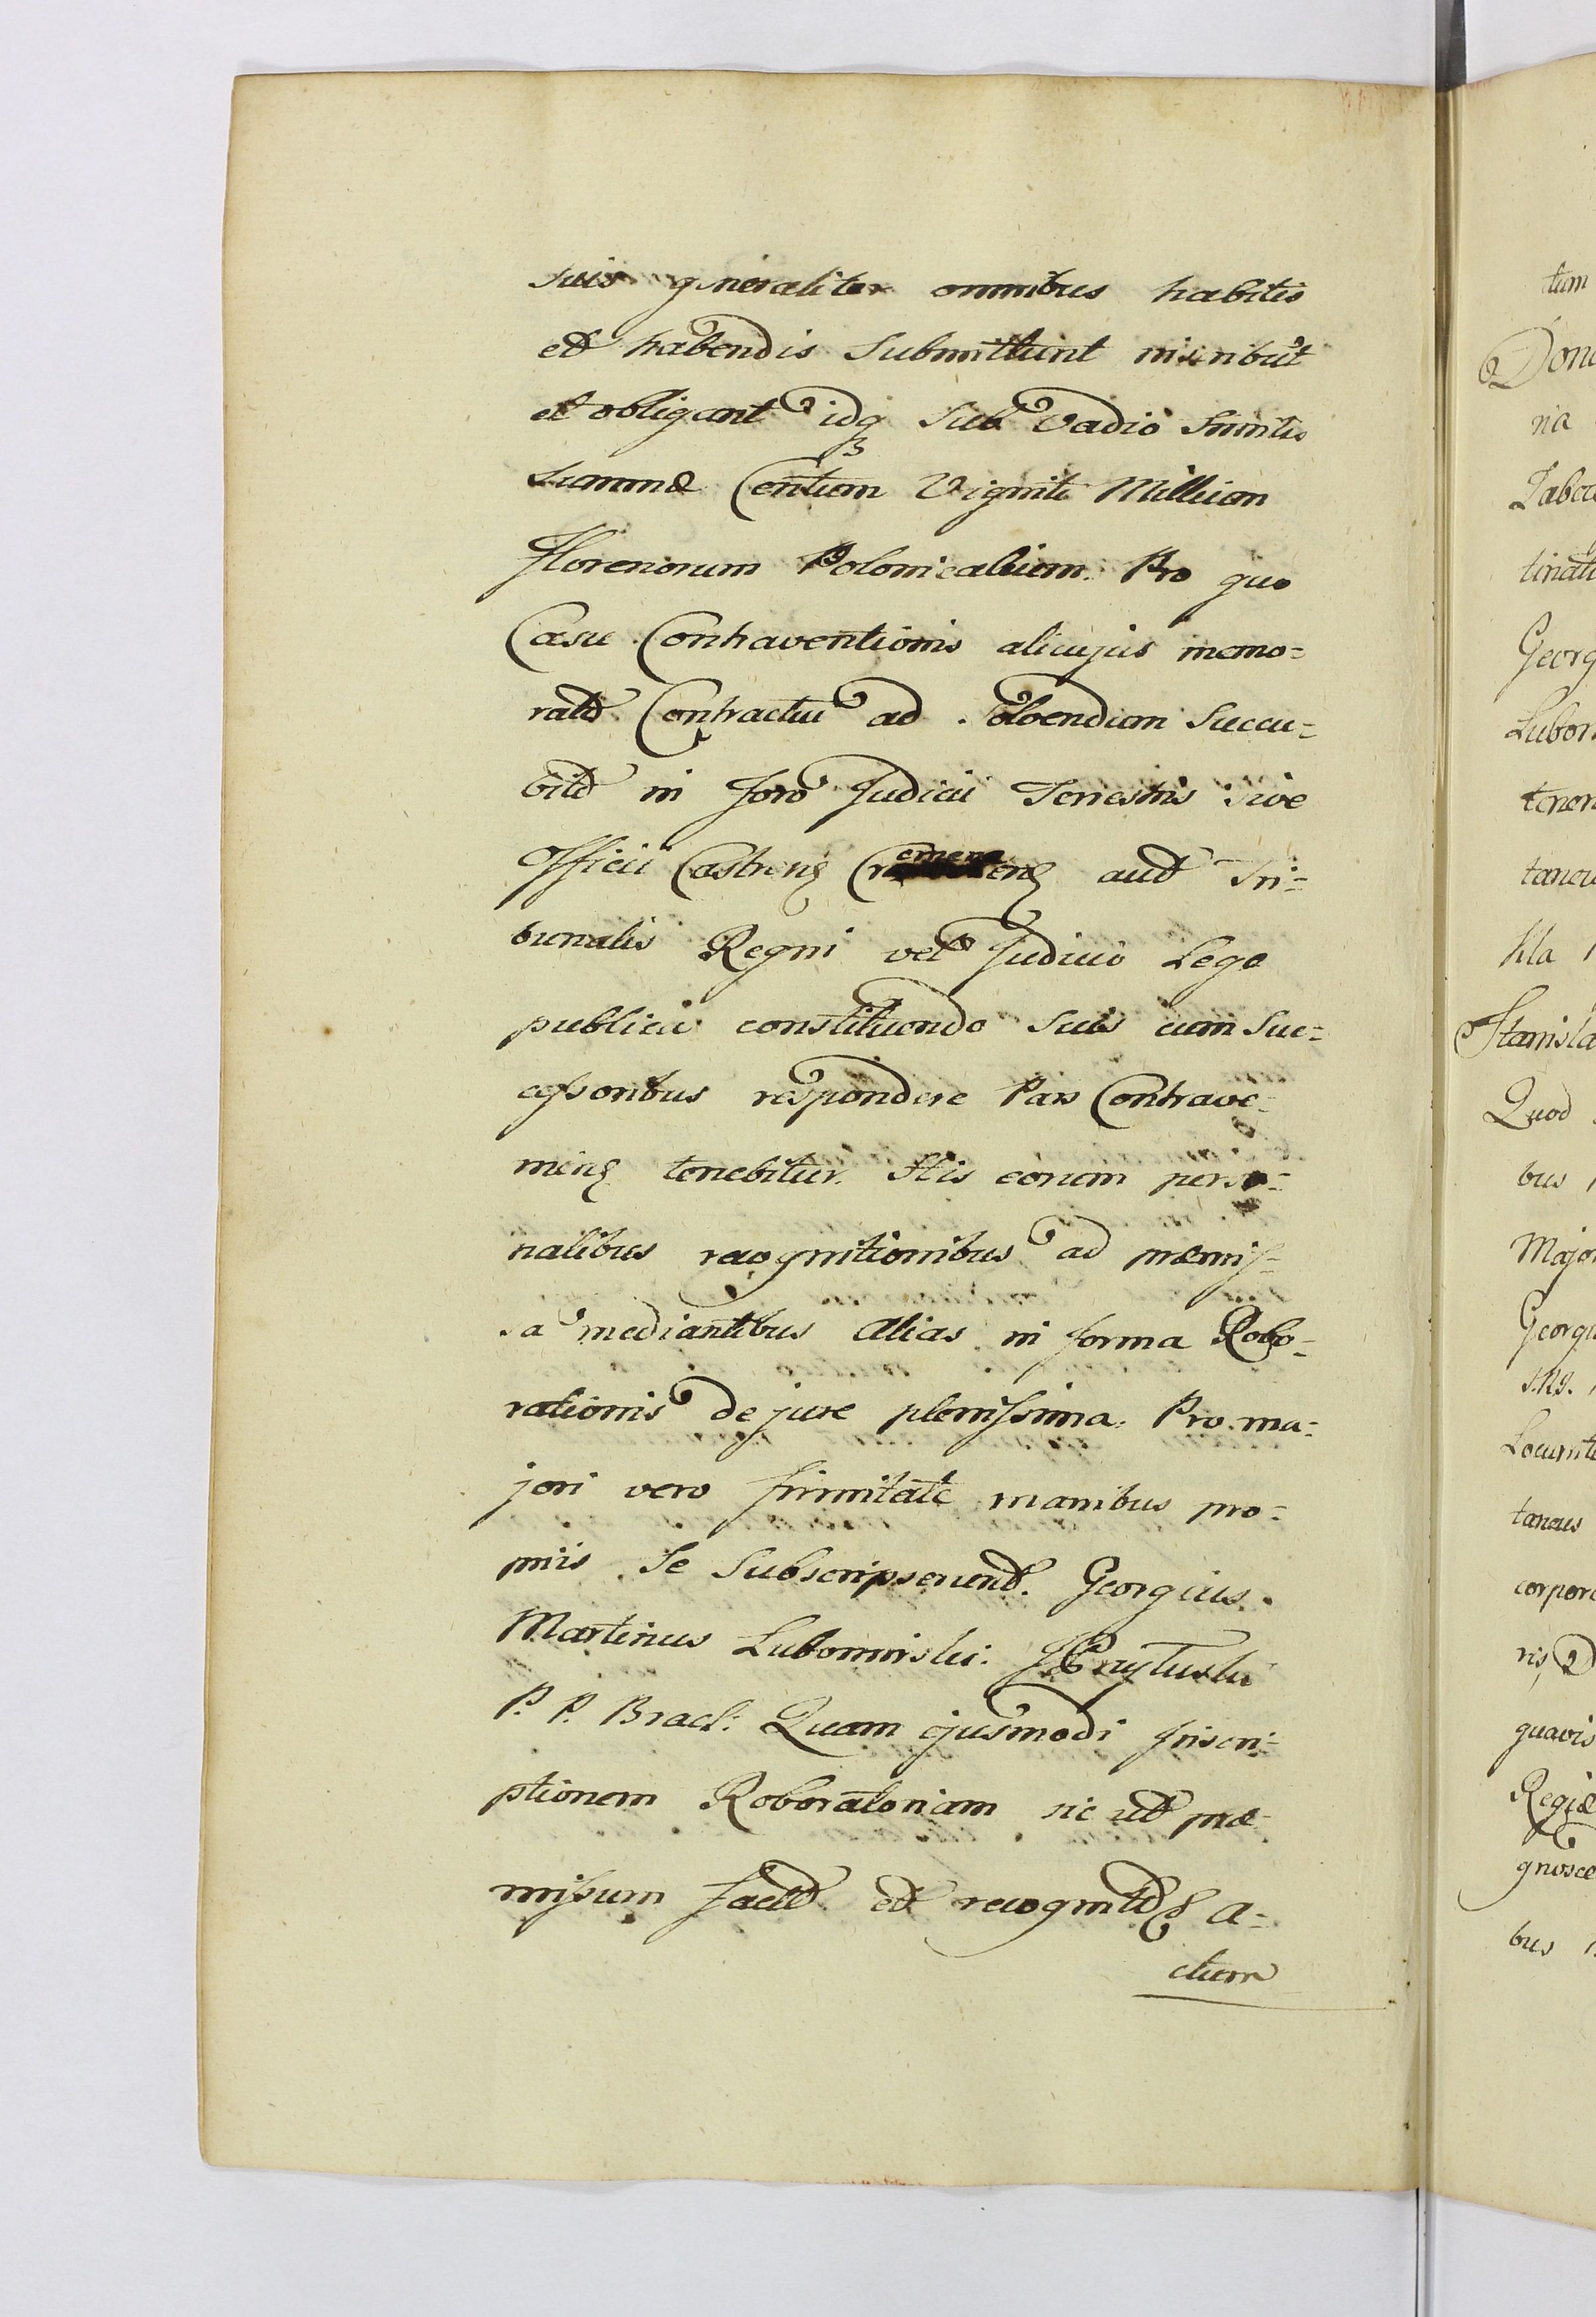 suis generaliter omnibus habitis
et habendis Submittunt inscribūt
et obligant idq3 Sub Vadio Similis
Summæ Centum Viginti Millium
Florenorum Polonicalium. Pro quo
Casu Contraventionis alicujus memo=
rato Contractui ad solvendum Succu=
bito in Foro Judicii Terrestris sive
Officii Castrens Cremenens aut Tri=
bunalis Regni vel Judicio Lege
publica constituendo suis cum Suc=
cessoribus respondere Pars Contrave=
niens tenebitur. His eorum perso=
nalibus recognitionibus ad præmis=
sa mediantibus Alias in forma Robo=
rationis de jure plenissima. Pro ma=
jori vero firmitate manibus pro=
priis Se Subscripserunt. Georgius
Martinus Lubomirski:
P. P. Bracl: Quam ejusmodi Inscri=
ptionem Roboratoriam sic ut præ=
missum fact et recognit A=
ctum
tum
Done
ria
Labor
tinat
Georg
Lubom
tenen
taneu
kla
Stanisla
Quod
bus
Major
Georgi
Locumte
taneus
corpore
ris
quavis
Regiæ
gnosce
bus